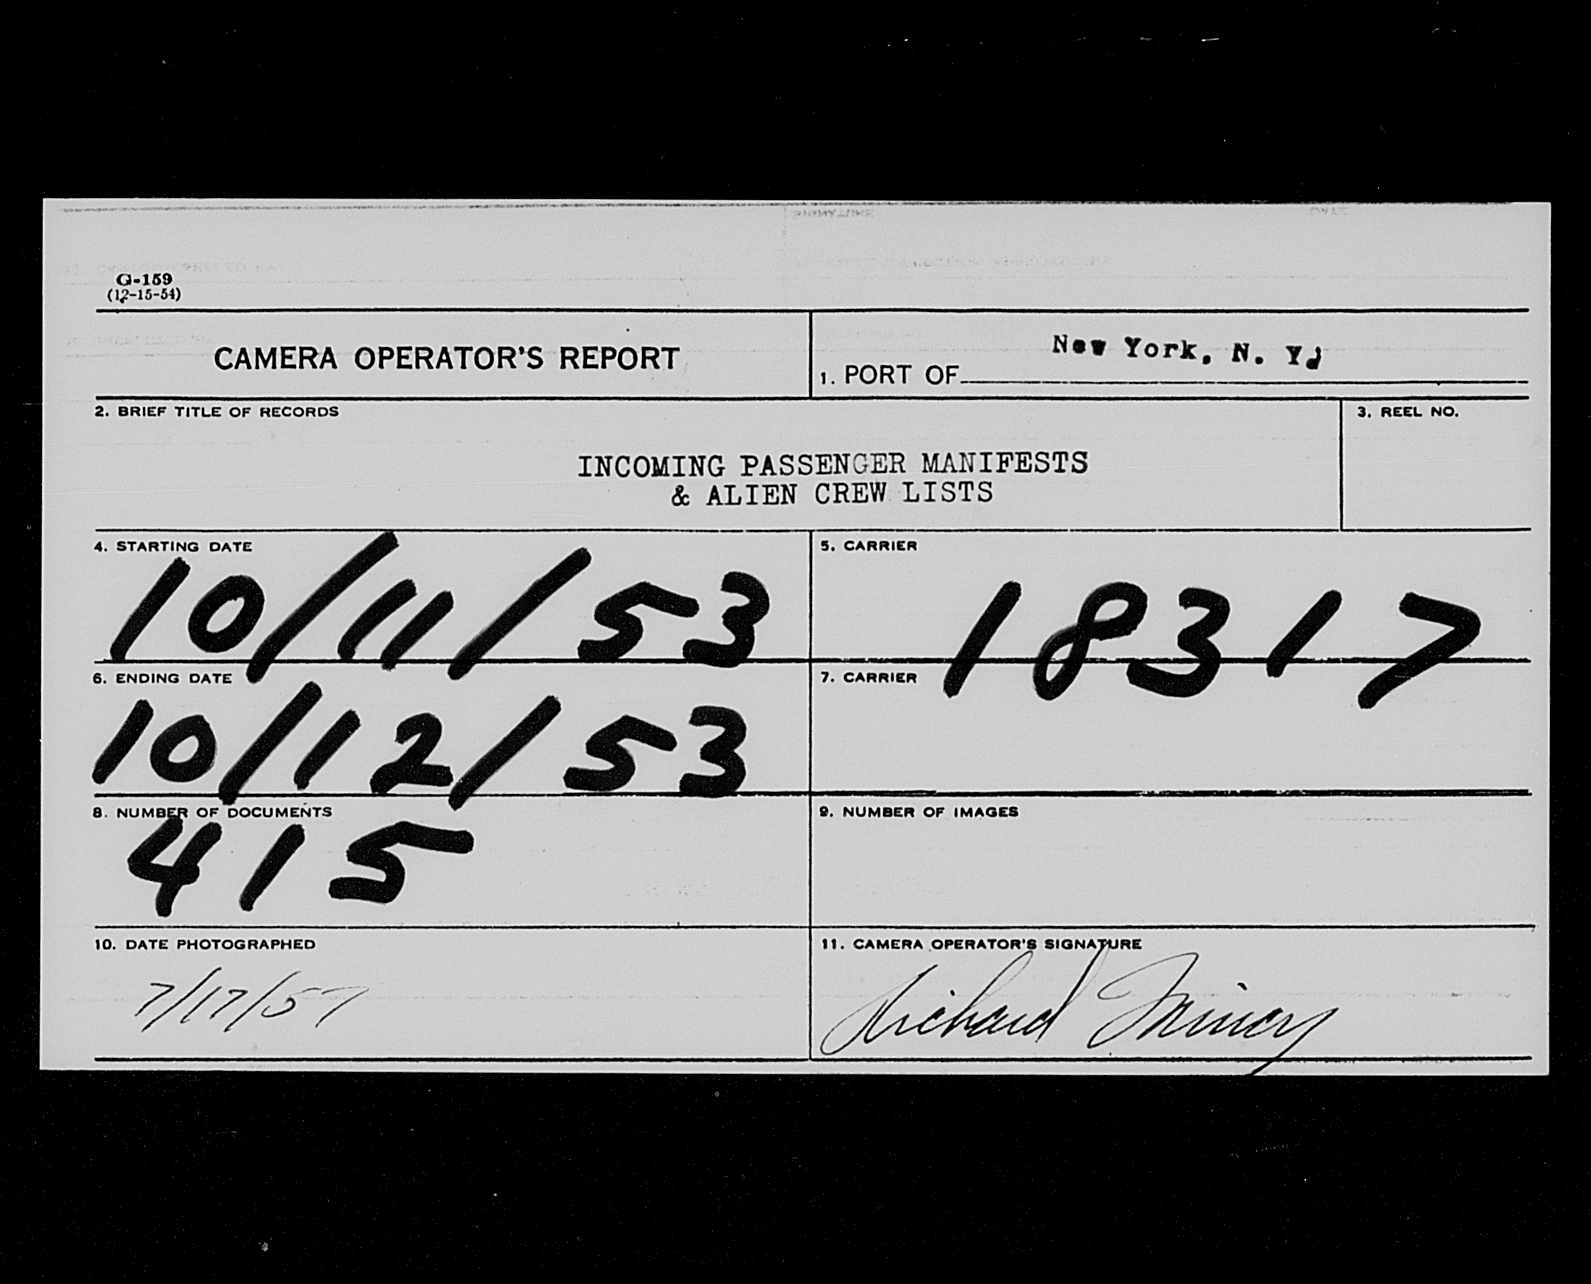 G-159
(12-15-54)
CAMERA OPERATOR'S REPORT
1. PORT OF New York, N. Y.
2. BRIEF TITLE OF RECORDS
3. REEL NO.
INCOMING PASSENGER MANIFESTS
& ALIEN CREW LISTS
4. STARTING DATE
10/11/53
5. CARRIER
18317
6. ENDING DATE
10/12/53
7. CARRIER
8. NUMBER OF DOCUMENTS
415
9. NUMBER OF IMAGES
10. DATE PHOTOGRAPHED
7/17/57
11. CAMERA OPERATOR'S SIGNATURE
Richard